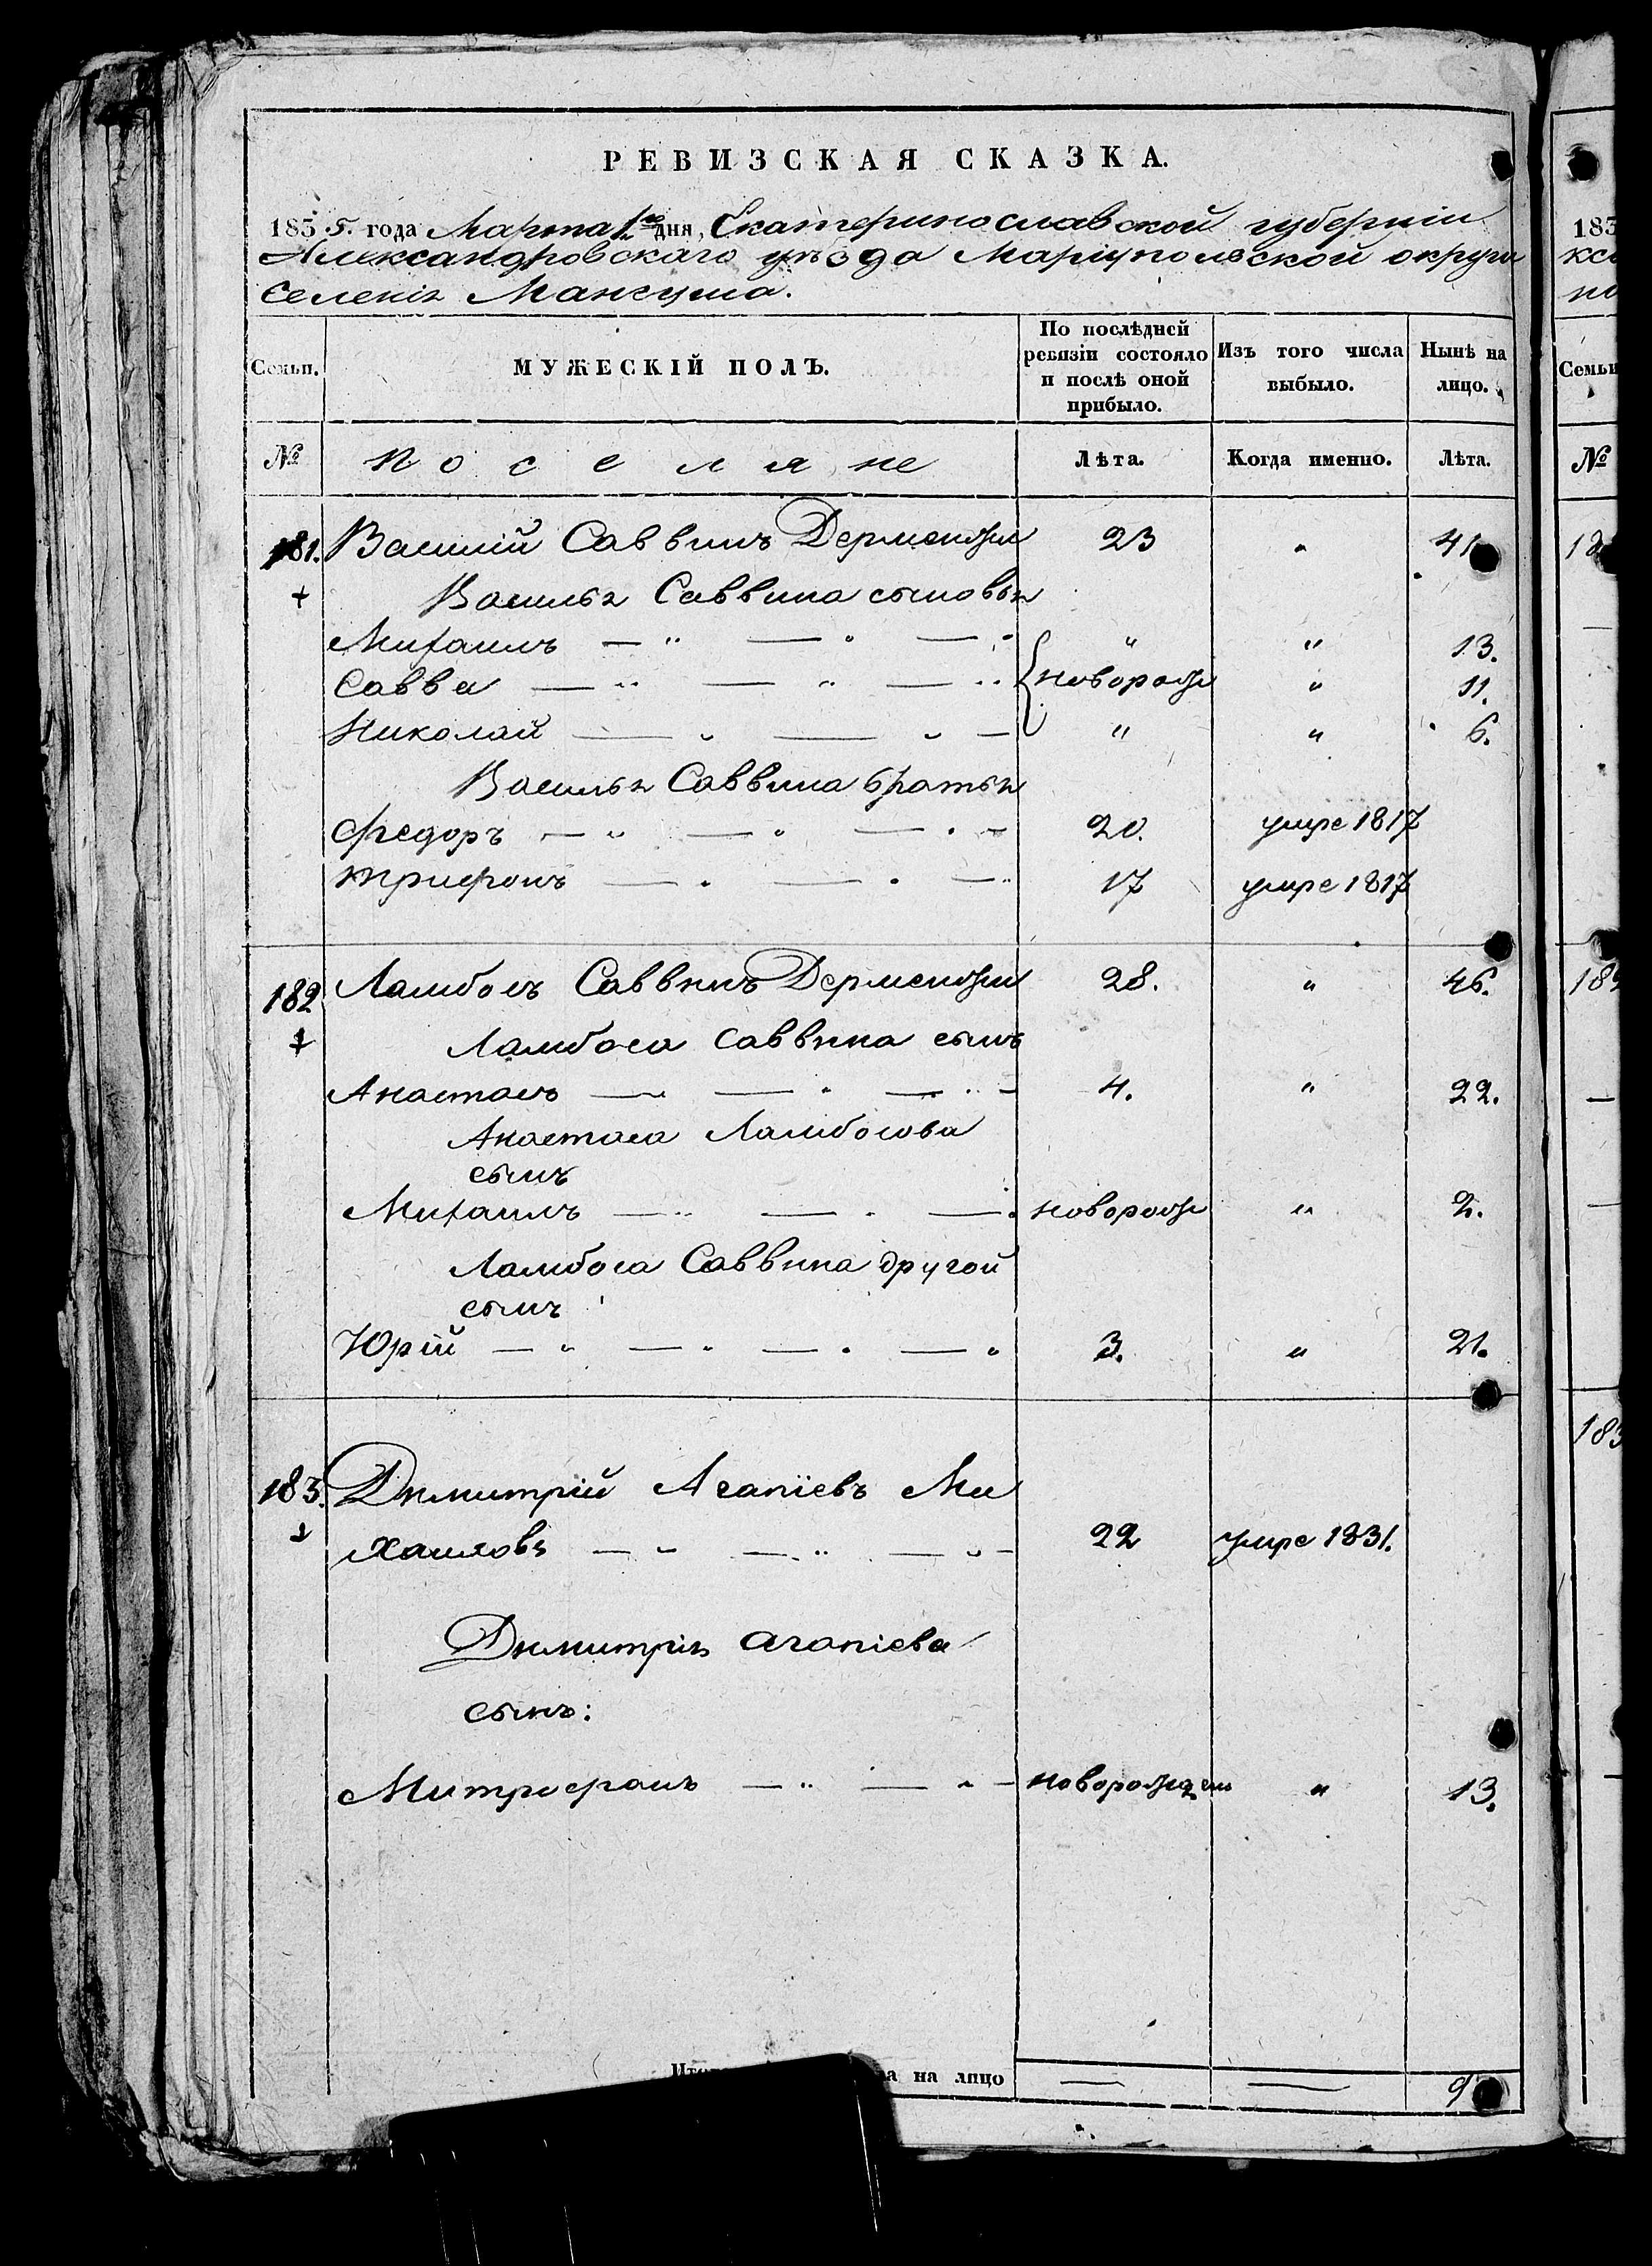 РЕВИЗСКАЯ СКАЗКА.
1835. года Марта 1го дня, Екатеринославской губерніи
Александровскаго уѣзда Маріупольской округи
Селенія Мангуша.
Семьи. МУЖЕСКІЙ ПОЛЪ. По послѣдней ревизіи состояло и послѣ оной прибыло. Изъ того числа выбыло. Нынѣ на лицо.
№ Поселяне Лѣта. Когда именно. Лѣта.
181. Василій Саввинъ Дерменжи 23 " 41
+ Василья Саввина сыновья
Михаилъ — " — " — " " " 13.
Савва — " — " — " новорож " 11.
Николай — " — " — " " 6.
Василья Саввина братья
Федоръ — " — " — " 20. умре 1817
Трифонъ — " — " — " 17 умре 1817
182 Ламбосъ Саввинъ Дерменжи 28. " 46.
+ Ламбоса Саввина сынъ
Анастасъ — " — " — " 4. " 22.
Анастаса Ламбосова
сынъ
Михаилъ — " — " — новорож " 2.
Ламбоса Саввина другой
сынъ
Юрій — " — " — " — " 3. " 21.
183. Димитрій Агапіевъ Ми
+ хаиловъ — " — " — " — 22 умре 1831.
Димитрія Агапіева
сынъ:
Митрофанъ — " — " — новорожден " 13.
на лицо — — 9
183